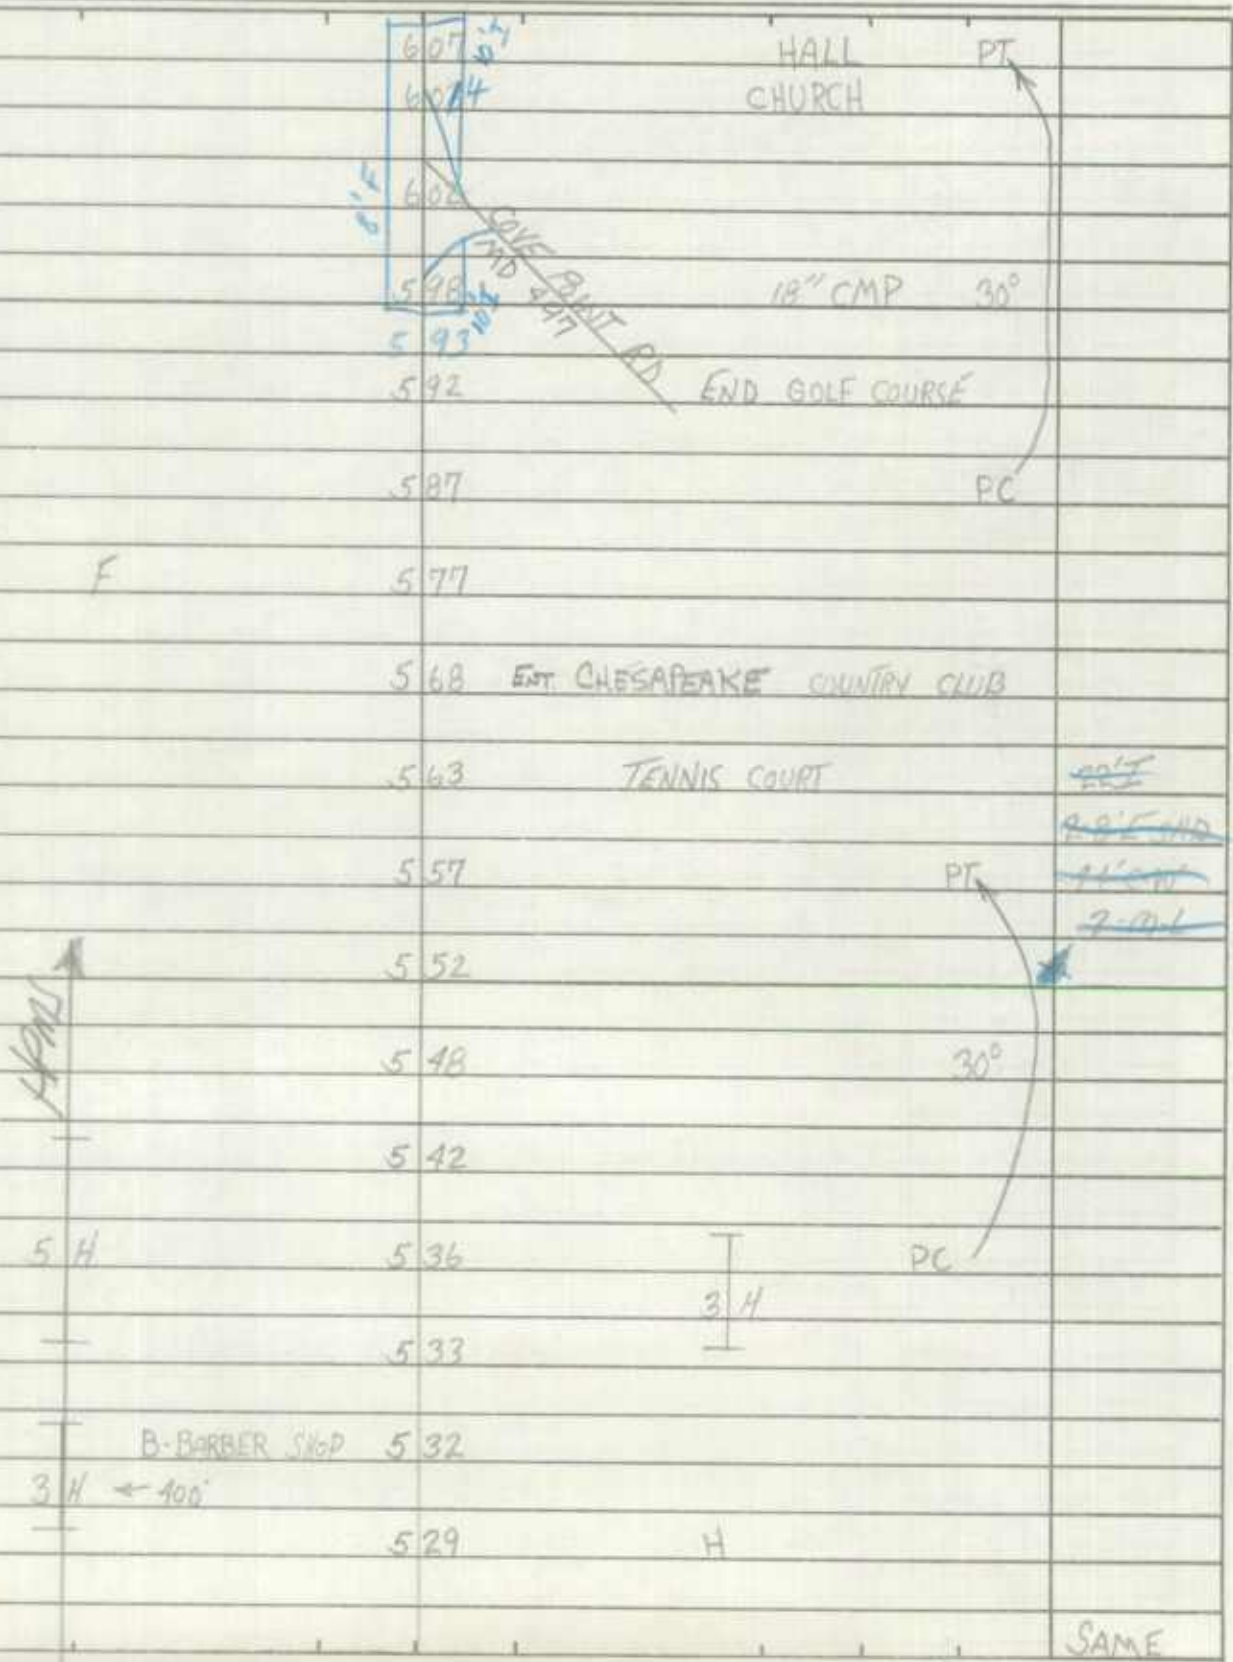 6 07 10' HALL PT
6 04 CHURCH
8' F
6 02
COVE POINT RD
MD 497
5 98 10' 18" CMP 30°
5 93
5 92 END GOLF COURSE
5 87 PC
F 5 77
5 68 ENT. CHESAPEAKE COUNTRY CLUB
5 63 TENNIS COURT 22' I
5 57 PT
5 52
HPMS
5 48 30°
5 42
5 H 5 36 PC
3 H
5 33
B-BARBER SHOP 5 32
3 H ← 400'
5 29 H
SAME